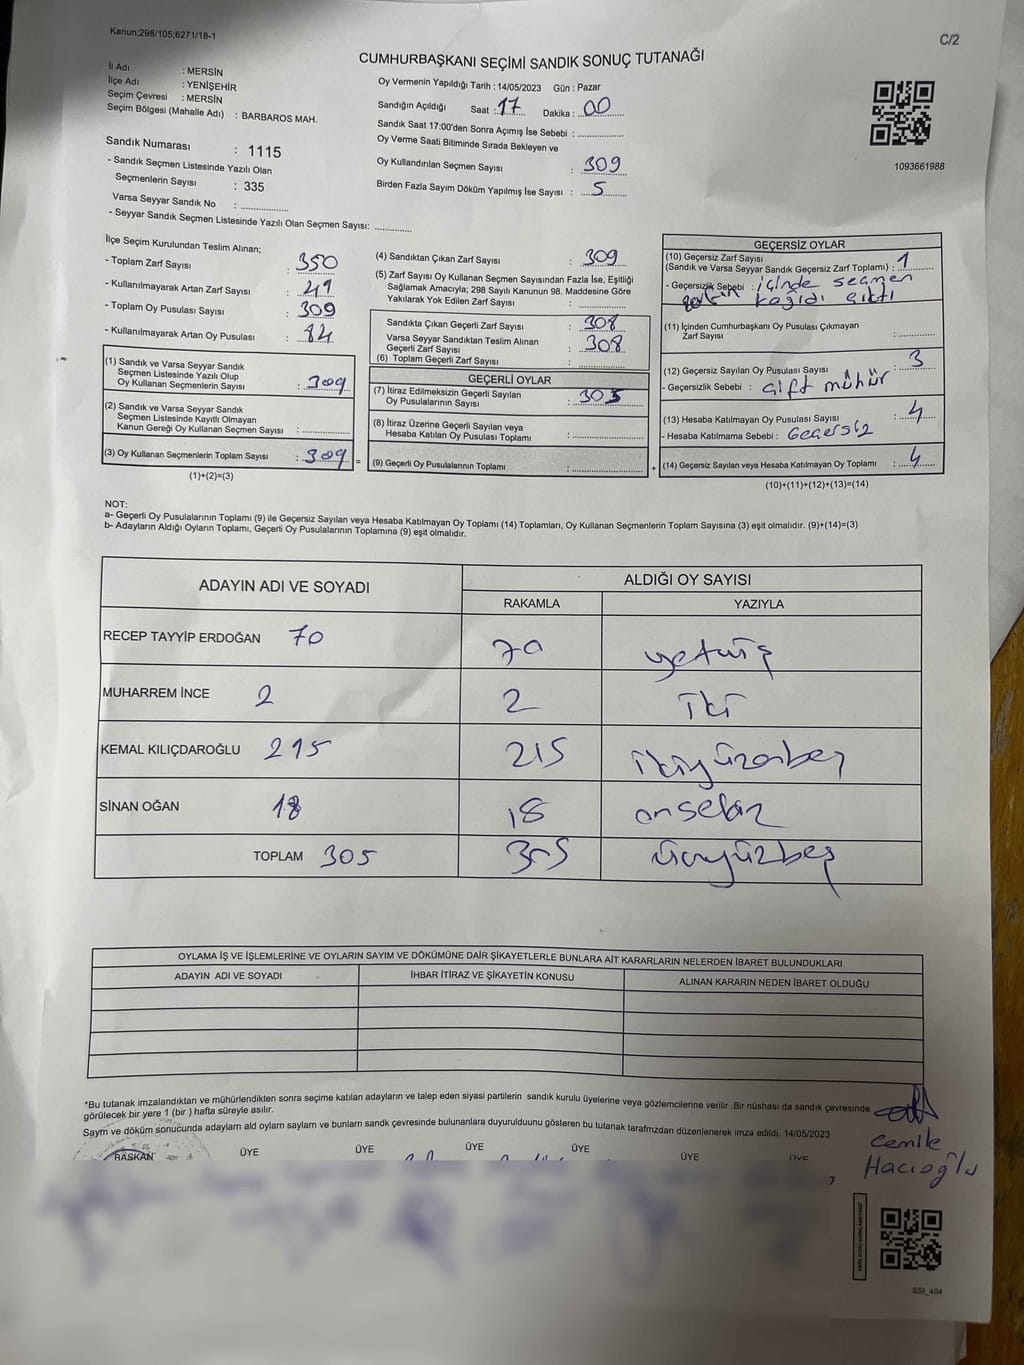 Kanun;298/105;6271/16-1
C/2
CUMHURBAŞKANI SEÇİMİ SANDIK SONUÇ TUTANAĞI
İl Adı : MERSİN
İlçe Adı : YENİŞEHİR
Seçim Çevresi : MERSİN
Seçim Bölgesi (Mahalle Adı) : BARBAROS MAH.
Oy Vermenin Yapıldığı Tarih : 14/05/2023 Gün : Pazar
Sandığın Açıldığı Saat : 17 Dakika : 00
Sandık Saat 17:00'den Sonra Açımış İse Sebebi :
Oy Verme Saati Bitiminde Sırada Bekleyen ve
Oy Kullandırılan Seçmen Sayısı : 309
Birden Fazla Sayım Döküm Yapılmış İse Sayısı : 5
1093661988
Sandık Numarası : 1115
- Sandık Seçmen Listesinde Yazılı Olan
Seçmenlerin Sayısı : 335
Varsa Seyyar Sandık No :
- Seyyar Sandık Seçmen Listesinde Yazılı Olan Seçmen Sayısı:
İlçe Seçim Kurulundan Teslim Alınan;
- Toplam Zarf Sayısı : 350
- Kullanılmayarak Artan Zarf Sayısı : 41
- Toplam Oy Pusulası Sayısı : 309
- Kullanılmayarak Artan Oy Pusulası :
(1) Sandık ve Varsa Seyyar Sandık
Seçmen Listesinde Yazılı Olup
Oy Kullanan Seçmenlerin Sayısı : 309
(2) Sandık ve Varsa Seyyar Sandık
Seçmen Listesinde Kayıtlı Olmayan
Kanun Gereği Oy Kullanan Seçmen Sayısı :
(3) Oy Kullanan Seçmenlerin Toplam Sayısı : 309 =
(1)+(2)=(3)
(4) Sandıktan Çıkan Zarf Sayısı : 309
(5) Zarf Sayısı Oy Kullanan Seçmen Sayısından Fazla İse, Eşitliği
Sağlamak Amacıyla; 298 Sayılı Kanunun 98. Maddesine Göre
Yakılarak Yok Edilen Zarf Sayısı :
Sandıkta Çıkan Geçerli Zarf Sayısı : 308
Varsa Seyyar Sandıktan Teslim Alınan
Geçerli Zarf Sayısı : 308
(6) Toplam Geçerli Zarf Sayısı :
GEÇERLİ OYLAR
(7) İtiraz Edilmeksizin Geçerli Sayılan
Oy Pusulalarının Sayısı : 305
(8) İtiraz Üzerine Geçerli Sayılan veya
Hesaba Katılan Oy Pusulası Toplamı :
(9) Geçerli Oy Pusulalarının Toplamı : +
GEÇERSİZ OYLAR
(10) Geçersiz Zarf Sayısı
(Sandık ve Varsa Seyyar Sandık Geçersiz Zarf Toplamı) : 1
- Geçersizlik Sebebi : içinde seçmen
kağıdı çıktı
(11) İçinden Cumhurbaşkanı Oy Pusulası Çıkmayan
Zarf Sayısı :
(12) Geçersiz Sayılan Oy Pusulası Sayısı : 3
- Geçersizlik Sebebi : çift mühür
(13) Hesaba Katılmayan Oy Pusulası Sayısı : 4
- Hesaba Katılmama Sebebi : Geçersiz
(14) Geçersiz Sayılan veya Hesaba Katılmayan Oy Toplamı : 4
(10)+(11)+(12)+(13)=(14)
NOT:
a- Geçerli Oy Pusulalarının Toplamı (9) ile Geçersiz Sayılan veya Hesaba Katılmayan Oy Toplamı (14) Toplamları, Oy Kullanan Seçmenlerin Toplam Sayısına (3) eşit olmalıdır. (9)+(14)=(3)
b- Adayların Aldığı Oyların Toplamı, Geçerli Oy Pusulalarının Toplamına (9) eşit olmalıdır.
ADAYIN ADI VE SOYADI ALDIĞI OY SAYISI
RAKAMLA YAZIYLA
RECEP TAYYİP ERDOĞAN 70 70 yetmiş
MUHARREM İNCE 2 2 iki
KEMAL KILIÇDAROĞLU 215 215 ikiyüzonbeş
SİNAN OĞAN 18 18 onsekiz
TOPLAM 305 305 üçyüzbeş
OYLAMA İŞ VE İŞLEMLERİNE VE OYLARIN SAYIM VE DÖKÜMÜNE DAİR ŞİKAYETLERLE BUNLARA AİT KARARLARIN NELERDEN İBARET BULUNDUKLARI
ADAYIN ADI VE SOYADI İHBAR İTİRAZ VE ŞİKAYETİN KONUSU ALINAN KARARIN NEDEN İBARET OLDUĞU
*Bu tutanak imzalandıktan ve mühürlendikten sonra seçime katılan adayların ve talep eden siyasi partilerin sandık kurulu üyelerine veya gözlemcilerine verilir .Bir nüshası da sandık çevresinde
görülecek bir yere 1 (bir ) hafta süreyle asılır.
Sayım ve döküm sonucunda adayların ald oyların sayıları ve bunların sandk çevresinde bulunanlara duyurulduunu gösteren bu tutanak tarafmzdan düzenlenerek imza edildi. 14/05/2023
BAŞKAN ÜYE ÜYE ÜYE ÜYE ÜYE ÜYE
Cemile
Hacıoğlu
SSI_404